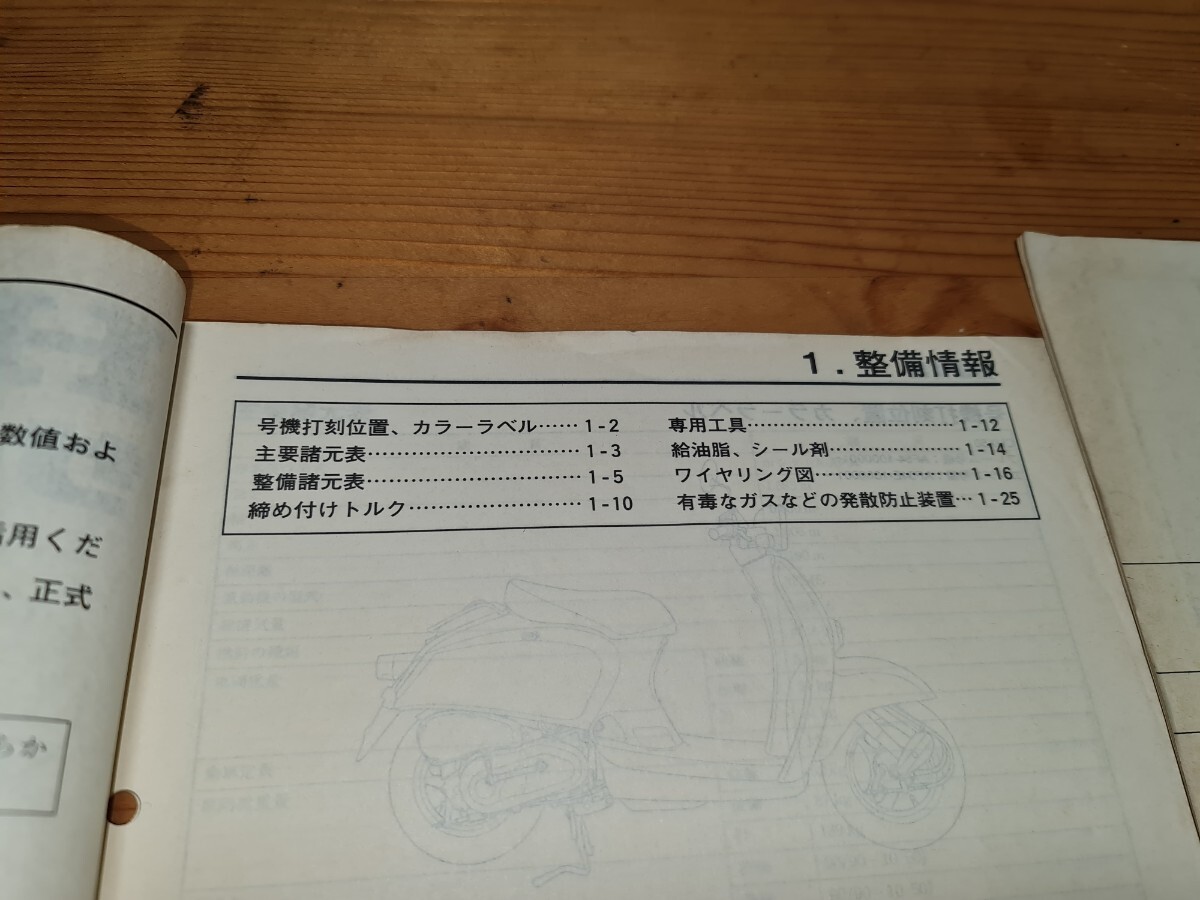 数値およ
活用くだ
、正式
らか
1.整備情報
号機打刻位置、カラーラベル……1-2
主要諸元表…………………………1-3
整備諸元表…………………………1-5
締め付けトルク……………………1-10
専用工具…………………………1-12
給油脂、シール剤………………1-14
ワイヤリング図…………………1-16
有毒なガスなどの発散防止装置…1-25